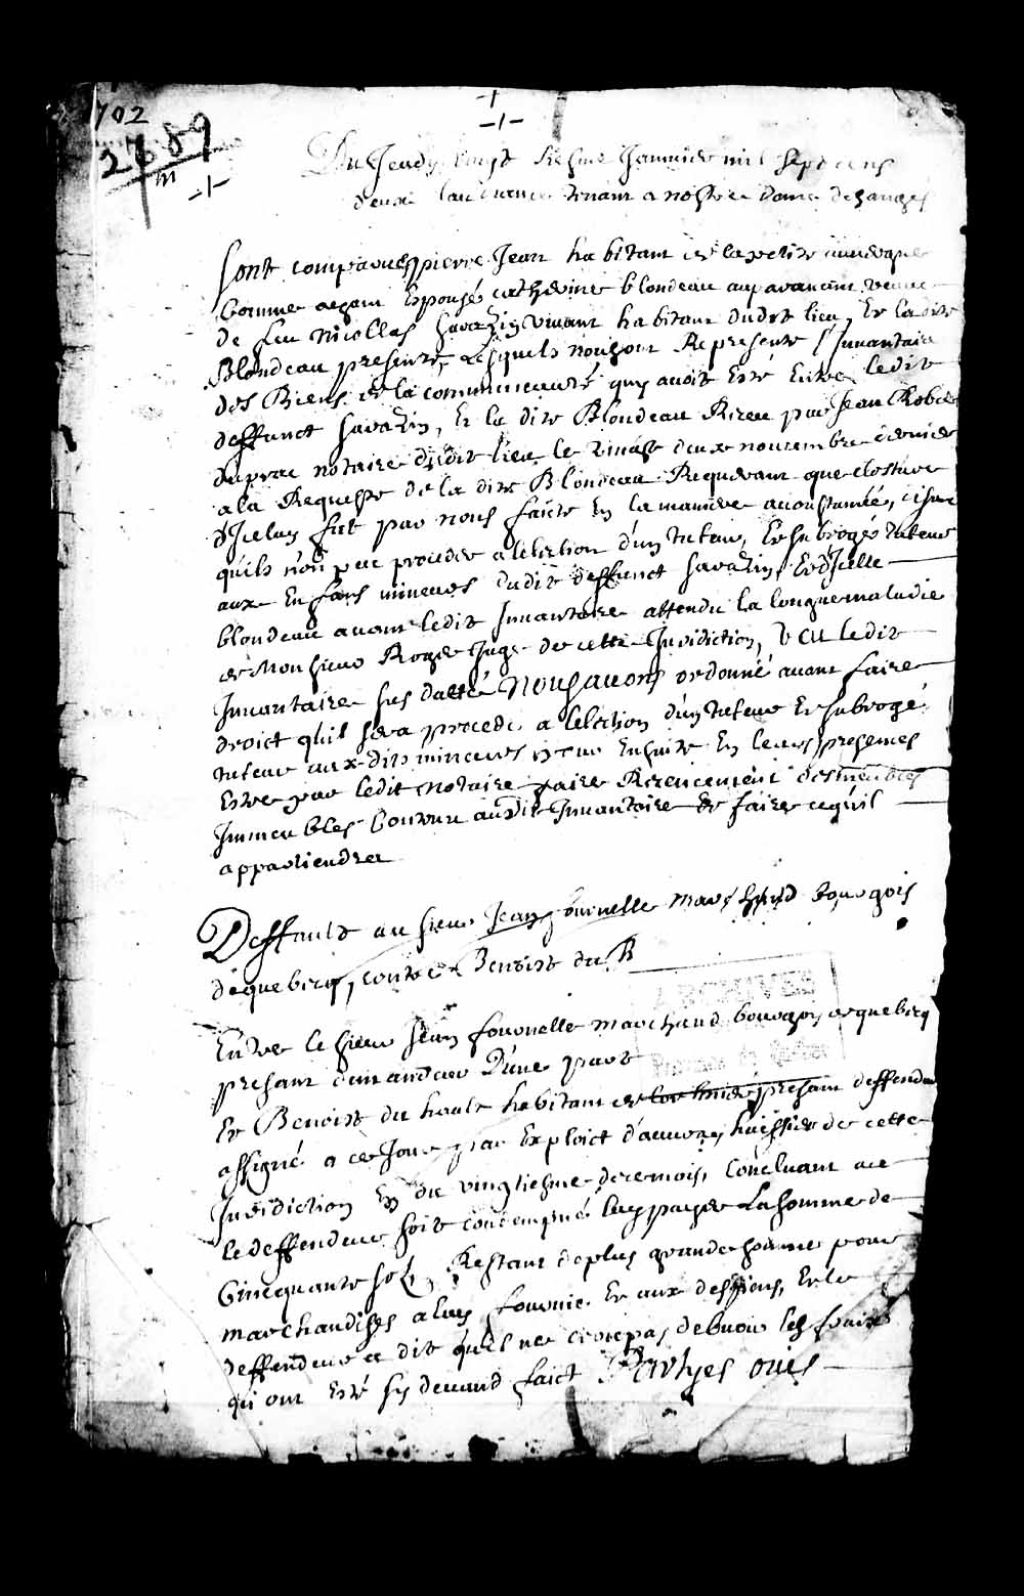 702
2789
m
Du Jeudy vingt Sixsme Januier mil Sept cens
deux laudiance tenant a nostre Dame des anges
Sont comparus pierre Jean habitant de la petite auuergne
Comme ayant Espousé catherine blondeau auparauant veuue
de feu Nicollas Sarazin viuant habitant dudit lieu, Et la dite
Blondeau presente, Lesquels nous ont Represente l'Inuantaire
des Biens de la communeauté quy auoit Esté Entre ledit
deffunct Sarazin, Et la dite Blondeau Receu par Jean Robert
duprac notaire dudit lieu le vingt deux nouembre dernier
a la Requeste de la dite Blondeau Requerant que closture
d'Iceluy fut par nous faicte En la maniere acoustumée,
quils n'ont peu proceder a lelection d'un tuteur, Et subrogé tuteur
aux Enfans mineurs dudit deffunct Sarazin, Et d'Icelle
blondeau auant ledit Inuantaire attendu la longue maladie
de Monsieur Roger Juge de cette Juridiction, Veu ledit
Inuantaire sus datté Nous auons ordonné auant faire
droict qu'il sera procedé a lelection d'un tuteur Et subrogé
tuteur aux dits mineurs pour Ensuite En leurs presences
Estre par ledit Notaire faire Recencement des meubles
Immeubles Contenu audit Inuantaire Et faire ce qu'il
appartiendra
Deffault au sieur Jean fournelle marchand bourgois
de quebecq, contre Benoist du R
Entre le sieur Jean fournelle marchand bourgois de quebecq
presant demandeur D'une part
Et Benoist du hault habitant de presant deffendeur
assigné a ce Jour par Exploict d'auuergne huissier de cette
Juridiction En du vingtiesme de ce mois, Concluant a ce
le deffendeur soit condempné luy payer La somme de
Cincquante solz, Restant de plus grande somme pour
marchandises a luy fournie Et aux despens, Et le
deffendeur a dit qu'il ne croit pas debuoir les frais
qui ont Esté sy deuand faict Partyes ouies